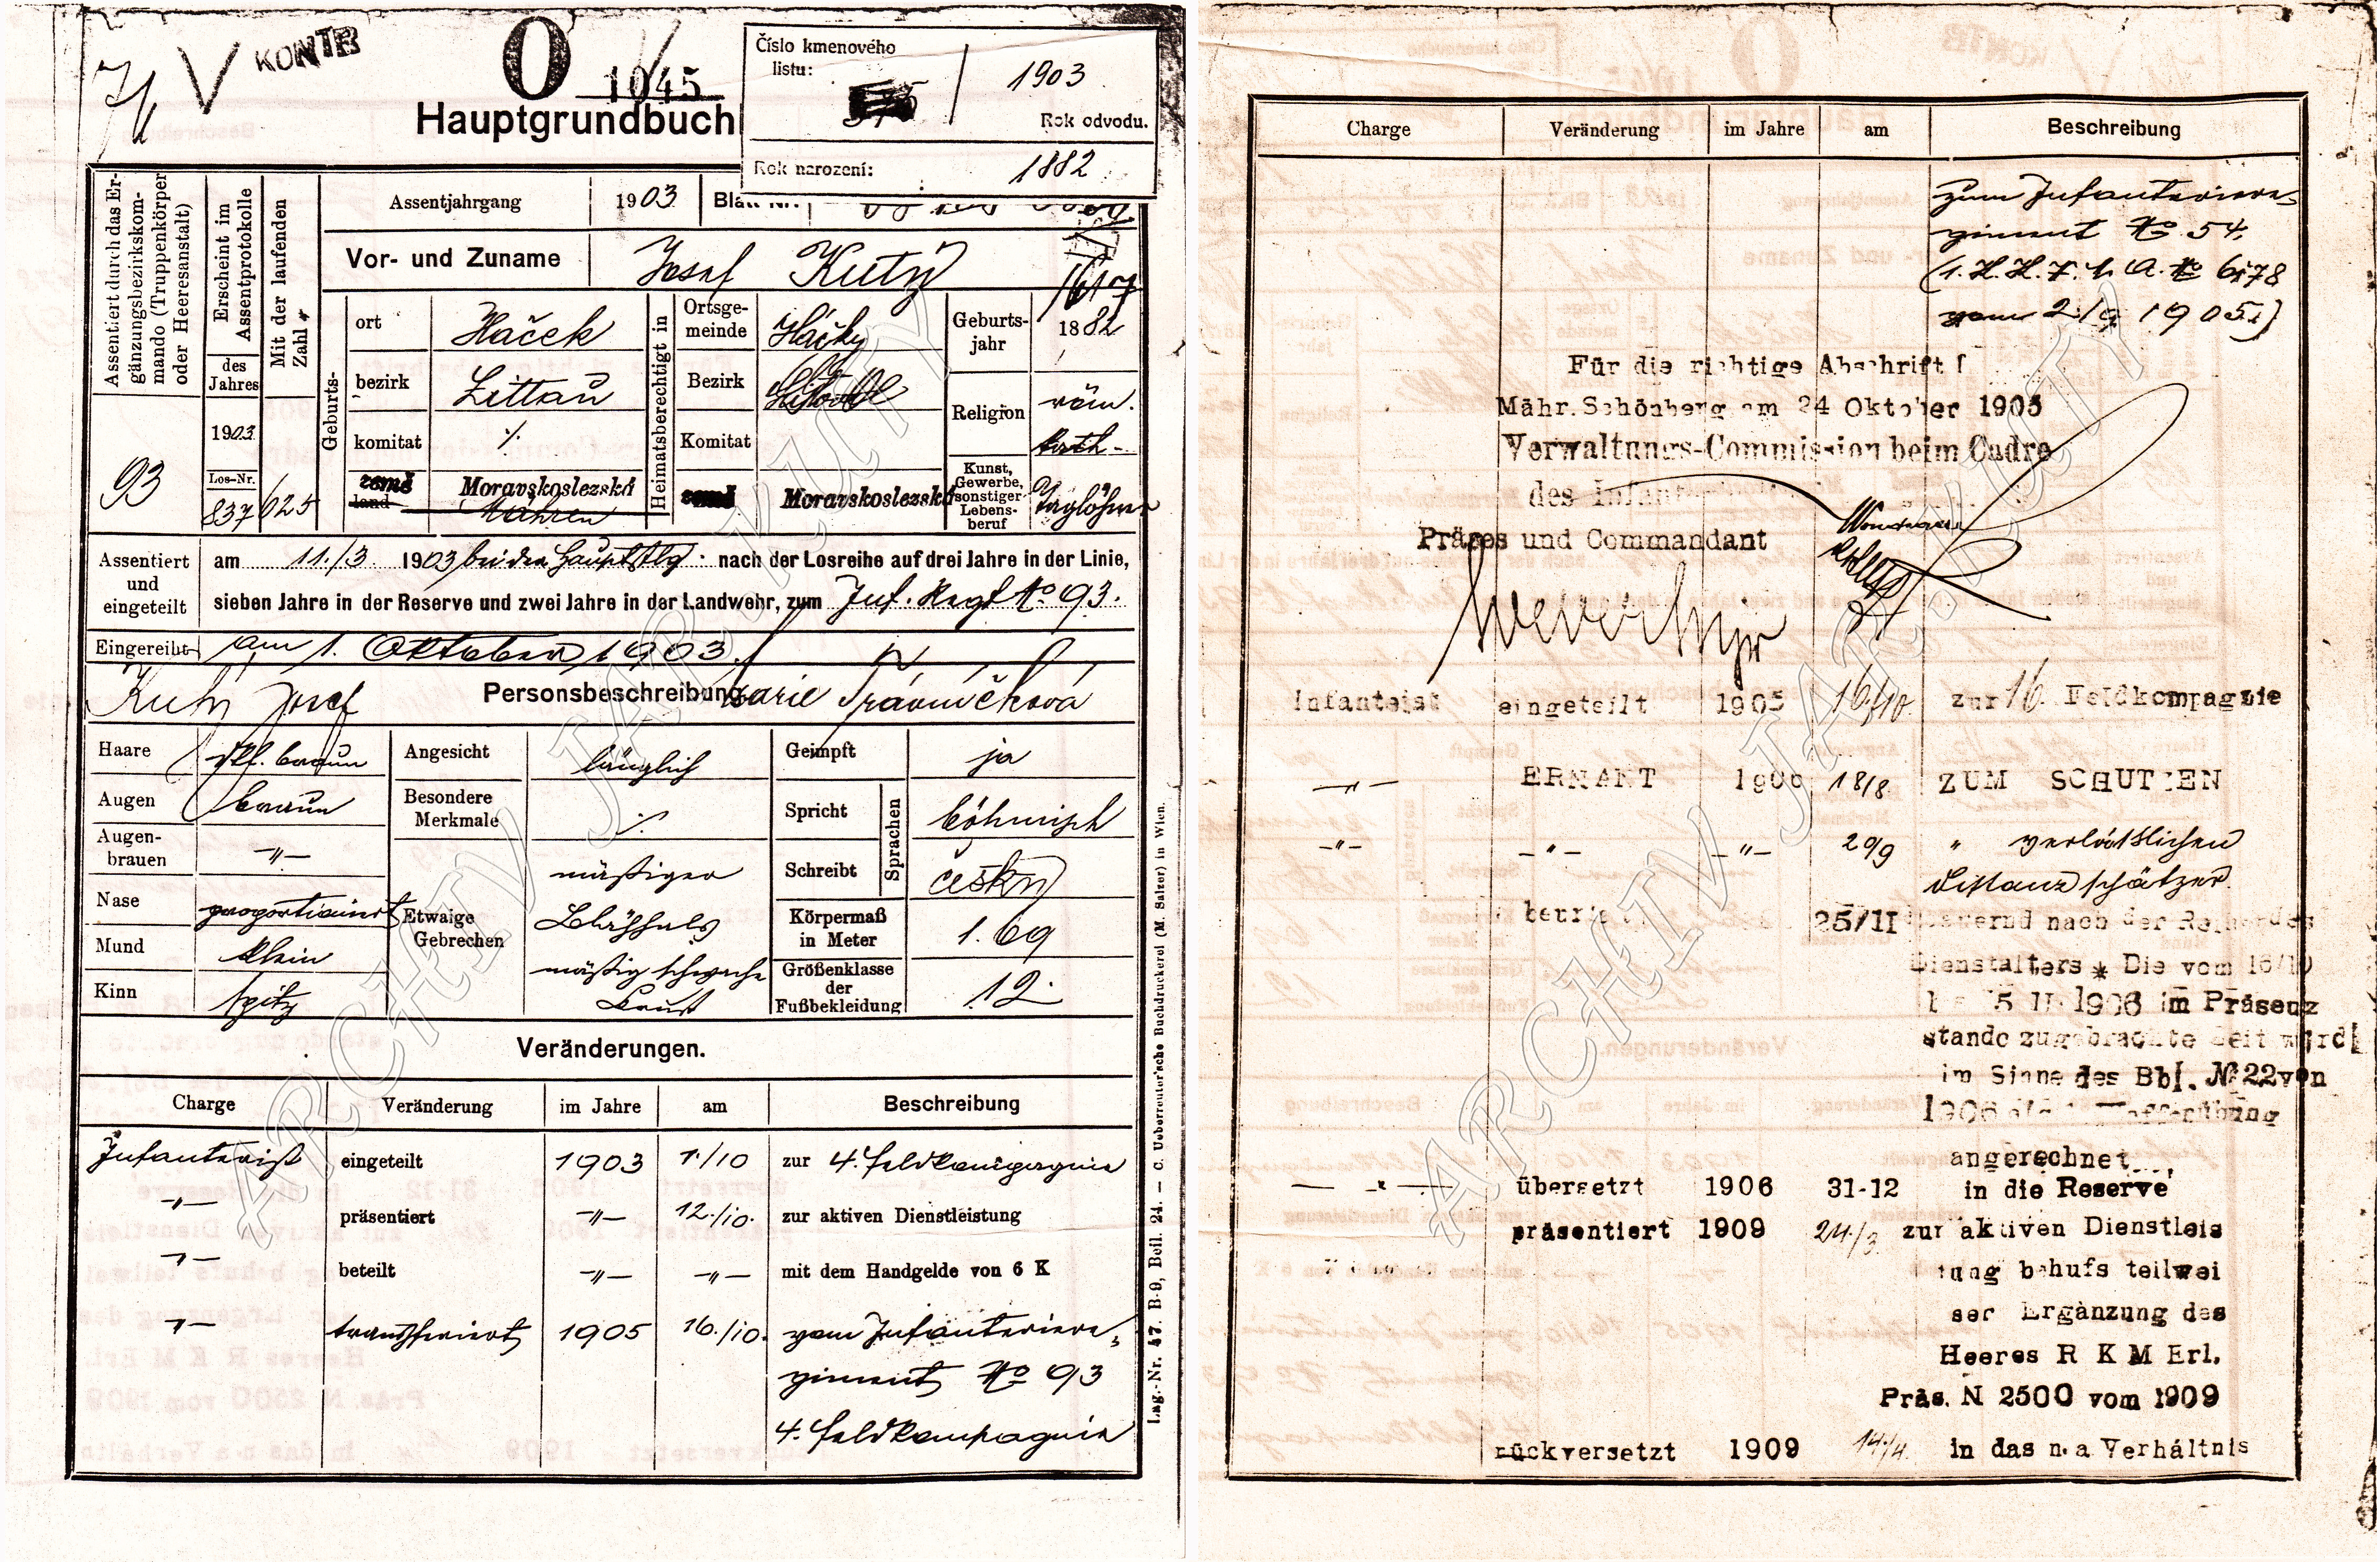 V KONTB
O
1045
Hauptgrundbuch
Číslo kmenového
listu:
1903
Rok odvodu.
Rok narození: 1882
Assentiert durch das Er-
gänzungsbezirkskom-
mando (Truppenkörper
oder Heeresanstalt)
Erscheint im
Assentprotokolle
des
Jahres
Mit der laufenden
Zahl
Assentjahrgang 1903 Blatt Nr.
Vor- und Zuname Josef Kutý
1617
Geburts-
ort Haček
bezirk Littau
komitat ·/.
země Moravskoslezská
land Mähren
Heimatsberechtigt in
Ortsge-
meinde Háčky
Bezirk
Komitat
země Moravskoslezská
Geburts-
jahr 1882
Religion röm.
kath-
Kunst,
Gewerbe,
sonstiger
Lebens-
beruf Taglöhner
93
1903
Los-Nr.
837 625
Assentiert
und
eingeteilt
am 11./3. 1903 bei der Hauptstlg. nach der Losreihe auf drei Jahre in der Linie,
sieben Jahre in der Reserve und zwei Jahre in der Landwehr, zum Inf. Regt No 93.
Eingereiht am 1. Oktober 1903.
Kutý Josef Personsbeschreibung Marie Trávníčková
Haare dkl. braun
Augen braun
Augen-
brauen -"-
Nase proportioniert
Mund klein
Kinn spitz
Angesicht länglich
Besondere
Merkmale ·/.
Etwaige
Gebrechen
mäßiger
Blähhals
mäßig schwache
Brust
Geimpft ja
Spricht böhmisch
Schreibt český
Sprachen
Körpermaß
in Meter 1.69
Größenklasse
der
Fußbekleidung 12.
Veränderungen.
Charge Veränderung im Jahre am Beschreibung
Infanterist eingeteilt 1903 1./10 zur 4. Feldkompagnie
-"- präsentiert -"- 12./10. zur aktiven Dienstleistung
-"- beteilt -"- -"- mit dem Handgelde von 6 K
-"- transferiert 1905 16./10. vom Infanteriere-
giment No 93
4. Feldkompagnie
Lag.-Nr. 47. B-9, Beil. 24. — C. Ueberreuter'sche Buchdruckerei (M. Salzer) in Wien.
Charge Veränderung im Jahre am Beschreibung
zum Infanteriere-
giment No 54.
vom 2/9 1905.)
Für die richtige Abschrift!
Mähr. Schönberg am 24 Oktober 1905
Verwaltungs-Commission beim Cadre
des
Präses und Commandant
Infanteist eingeteilt 1905 16/10. zur 16. Feldkompagnie
-"- ERNANT 1906 18/8. ZUM SCHUTZEN
-"- -"- -"- 29/9 " verläßlichen
Distanzschätzer.
25/11 dauernd nach der Reihe des
Dienstalters * Die vom 16/10
1906 im Präsenz
stande zugebrachte Zeit wird
im Sinne des Bbl. No 22 von
1906 Waffenübung
angerechnet
— " — übersetzt 1906 31-12 in die Reserve
präsentiert 1909 24./3. zur aktiven Dienstleis
tung behufs teilwei
ser Ergänzung des
Heeres R K M Erl.
Präs. N 2500 vom 1909
rückversetzt 1909 14./4. in das n.a Verhältnis
ARCHIV JAR. KUTÝ
ARCHIV JAR. KUTÝ